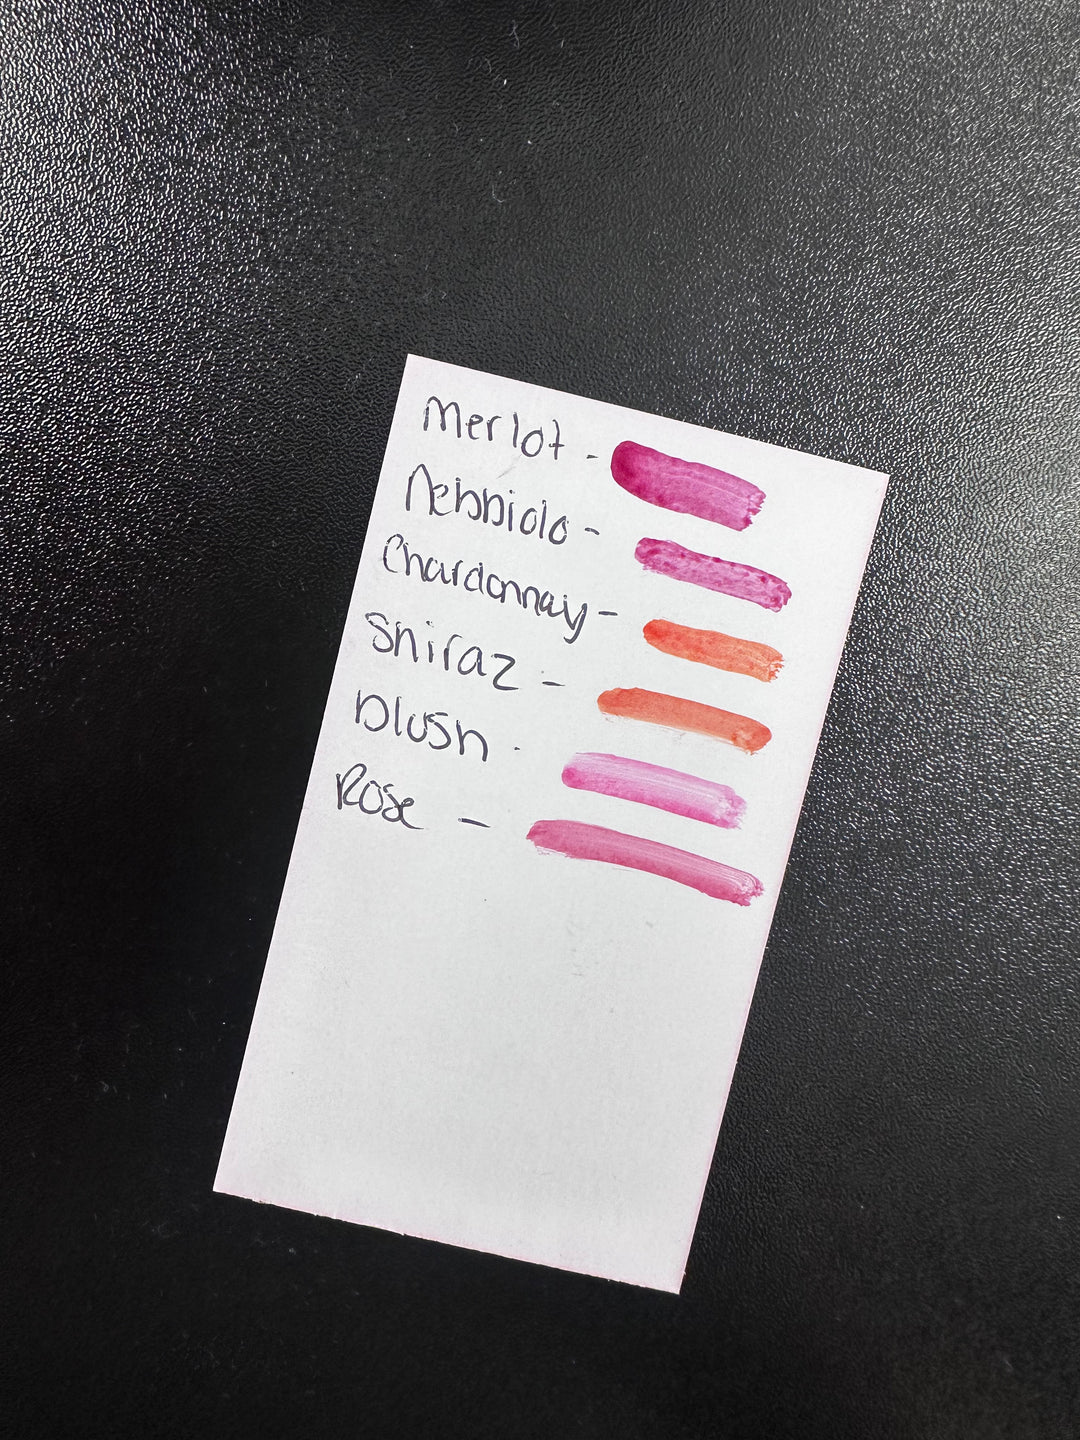 Merlot -
Nebbiolo -
Chardonnay -
Shiraz -
blush -
Rose -